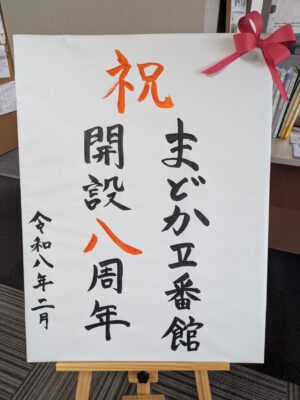 祝
まどか五番館
開設八周年
令和八年二月